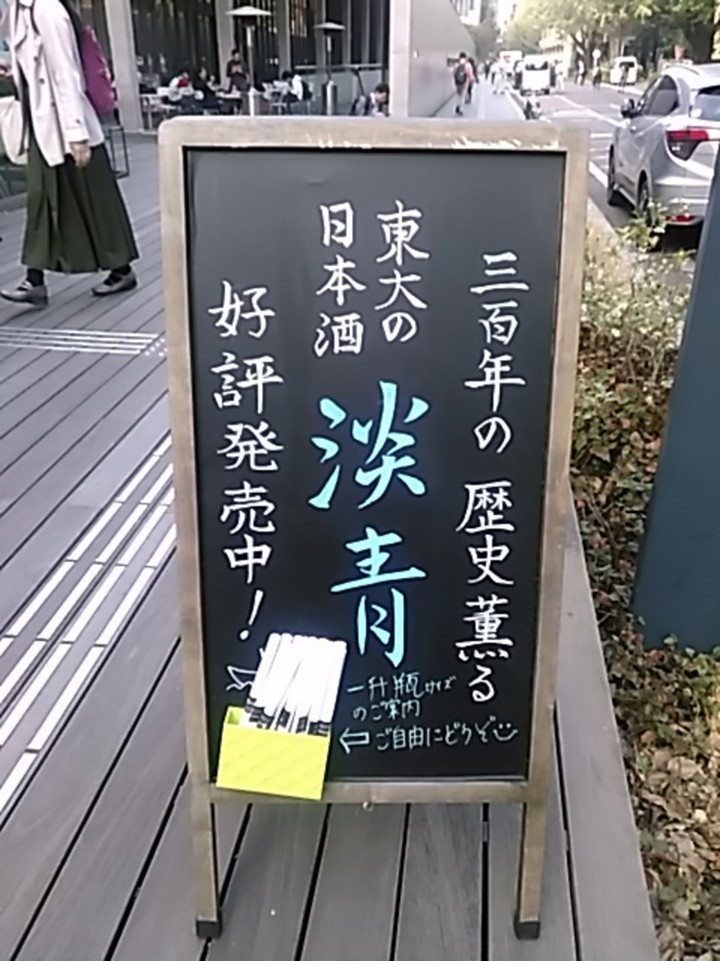 三百年の歴史薫る
東大の
日本酒
淡青
好評発売中!
一升瓶
のご案内
⇦ご自由にどうぞ